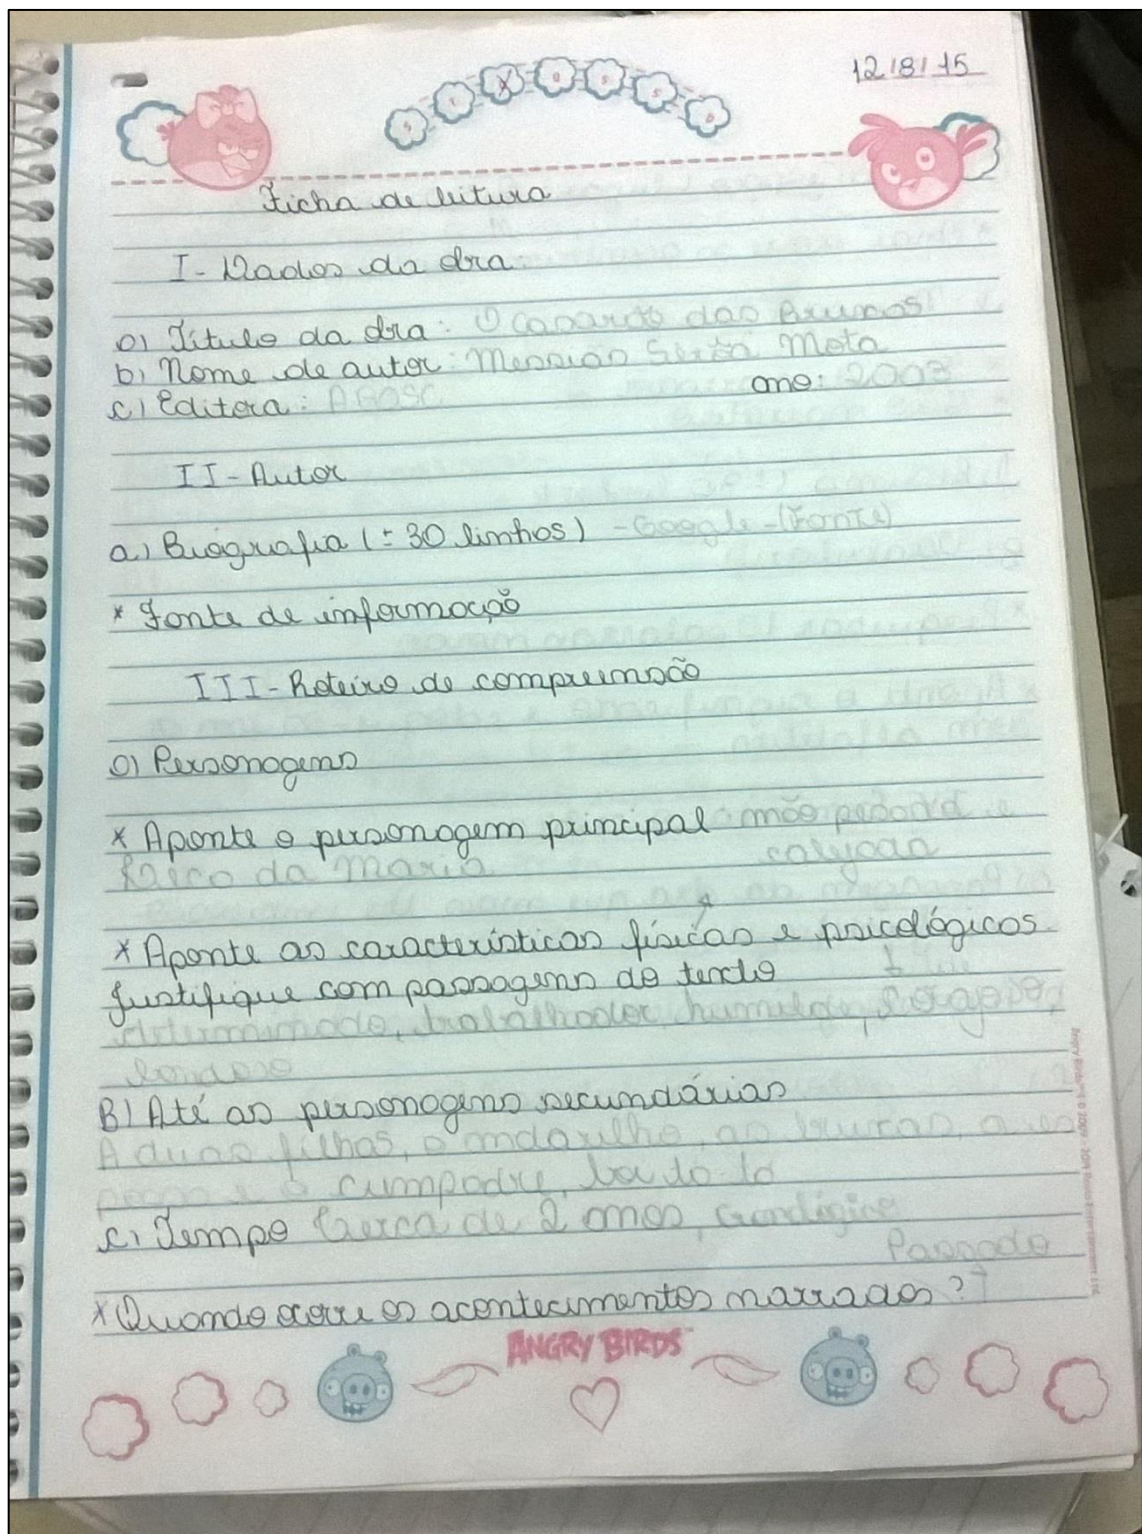 12/8/15
Ficha de leitura
I - Dados da obra
a) Título da obra: O Casarão das Bruxas
b) Nome de autor: Messias Mota
c) Editora: ano: 2003
II - Autor
a) Biografia (± 30 linhas) - Google - (Fonte)
* Fonte de informação
III - Roteiro de compreensão
a) Personagens
* Aponte o personagem principal mão pesada e
da Maria
* Aponte as características físicas e psicológicas
Justifique com passagens do texto
determinado, trabalhador, humilde,
bondoso
B) Até as personagens secundárias
A duas filhas, o andarilho, as bruxas,
e o cumpadre,
c) Tempo Cerca de 2 anos,
Passado
* Quando ocorre os acontecimentos narrados?
ANGRY BIRDS